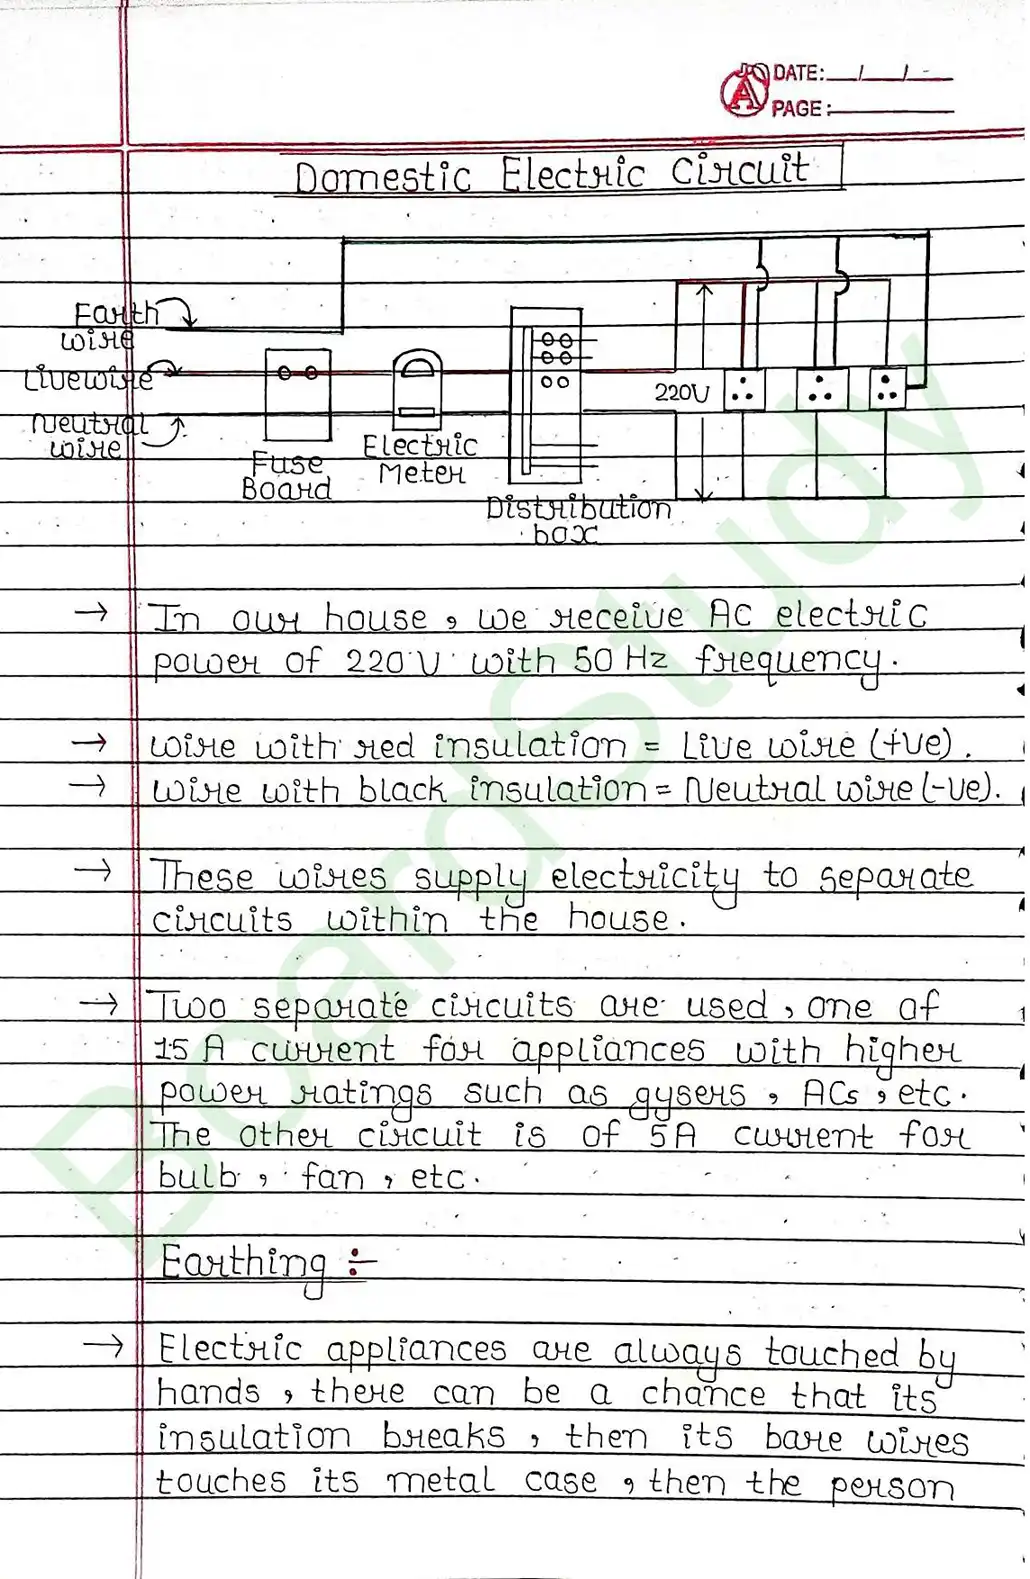 DATE: / / -
PAGE:
Domestic Electric Circuit
Earth
wire
Livewire
Neutral
wire
Fuse
Board
Electric
Meter
Distribution
box
220V
→ In our house, we receive AC electric
power of 220 V with 50 Hz frequency.
→ wire with red insulation = Live wire (+ve).
→ wire with black insulation = Neutral wire (-ve).
→ These wires supply electricity to separate
circuits within the house.
→ Two separate circuits are used, one of
15 A current for appliances with higher
power ratings such as gysers, ACs, etc.
The other circuit is of 5A current for
bulb, fan, etc.
Earthing :-
→ Electric appliances are always touched by
hands, there can be a chance that its
insulation breaks, then its bare wires
touches its metal case, then the person
BoardStudy